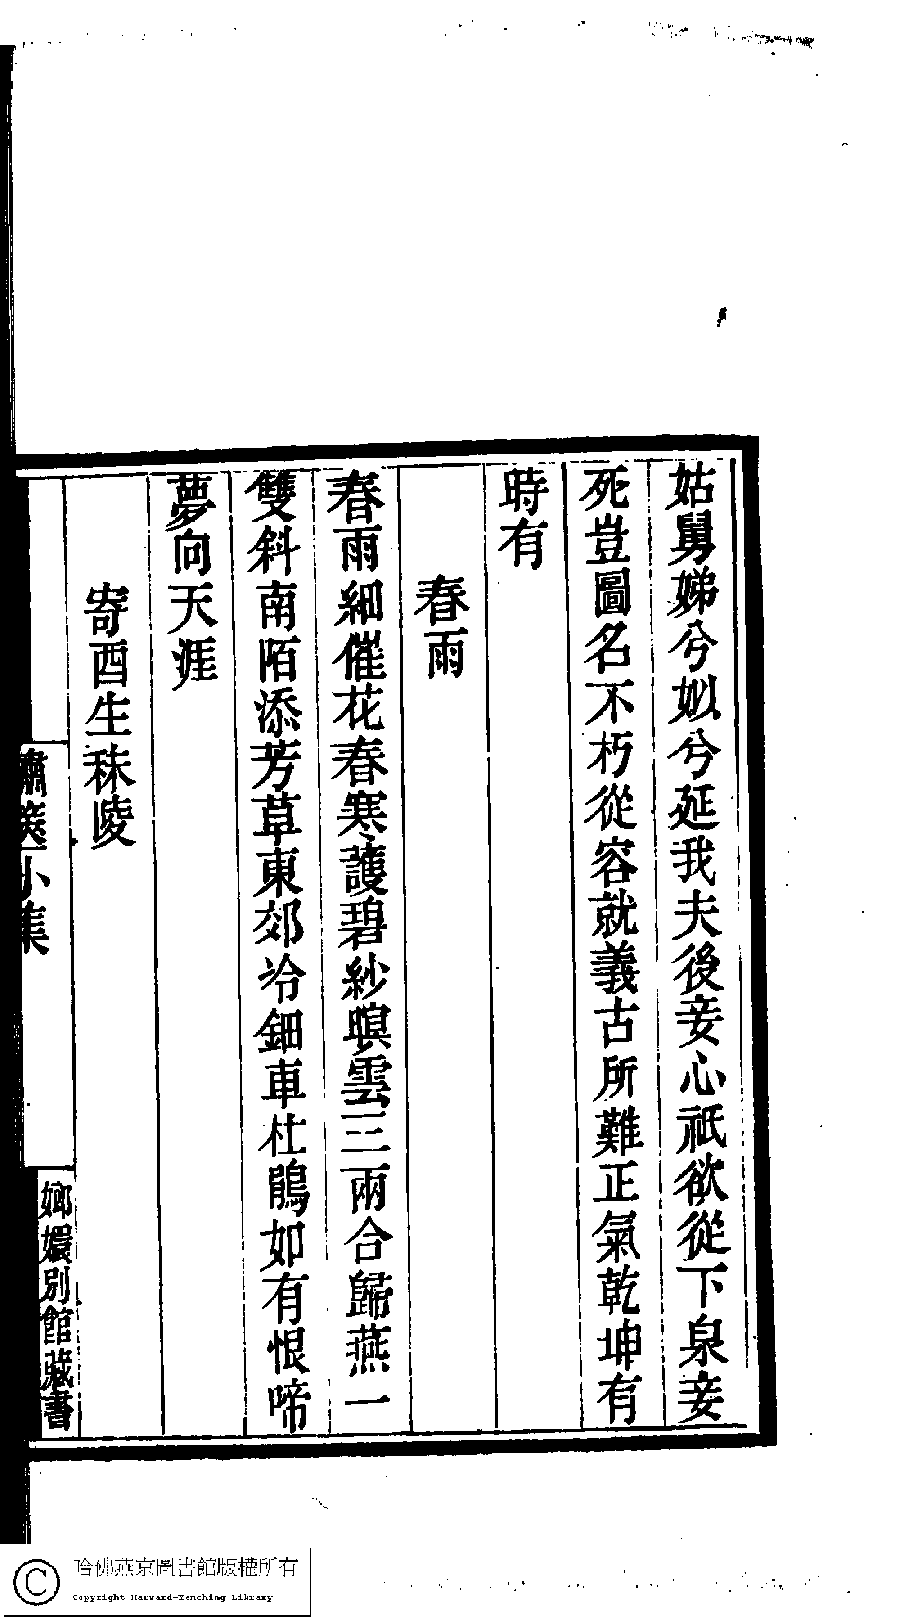 姑舅娣兮姒兮延我夫後妾心祇欲從下泉妾
死豈圖名不朽從容就義古所難正氣乾坤有
時有
春雨
春雨細催花春寒護碧紗暝雲三兩合歸燕一
雙斜南陌添芳草東郊冷鈿車杜鵑如有恨啼
夢向天涯
寄酉生秣陵
小集
嫏嬛別館藏書
哈佛燕京圖書館版權所有
Copyright Harvard-Yenching Library